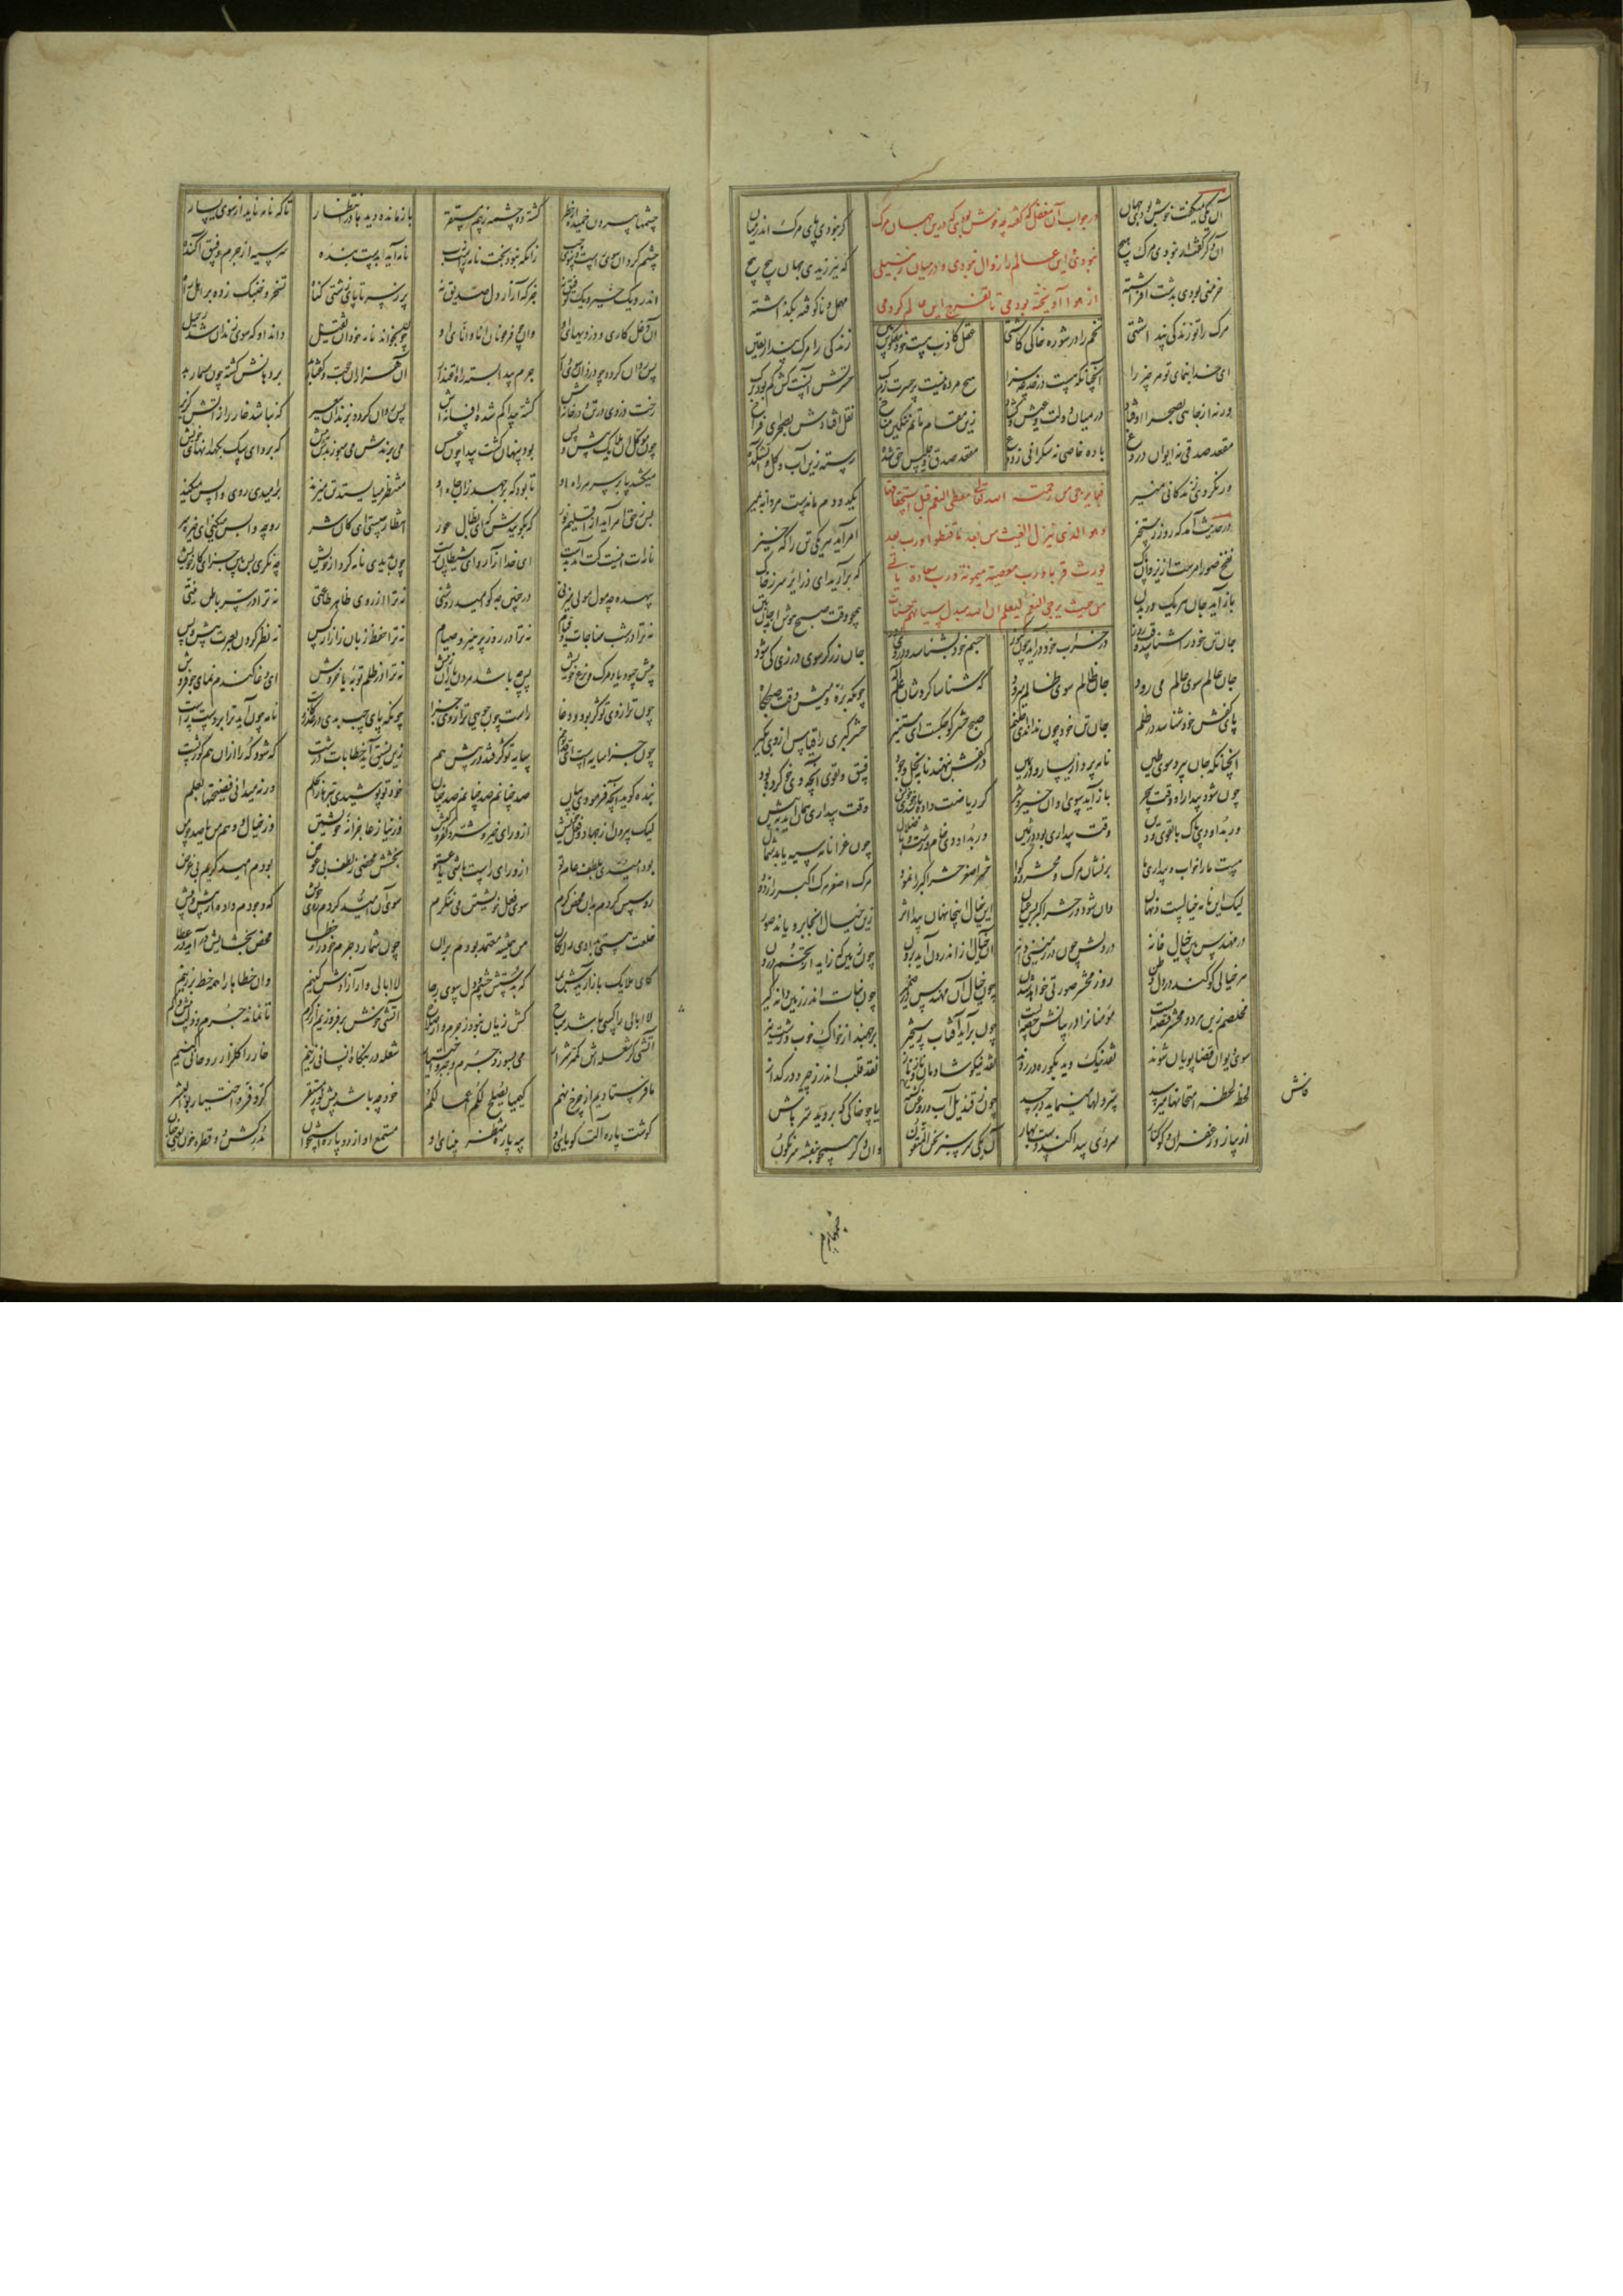 آن یکی میگفت خوش بودی جهان
در جواب آن مغفل که گفته چه خوش بودی که درین جهان مرگ
گر نبودی پای مرگ اندر میان
آن دگر گفت ار نبودی مرگ هیچ
نبودی این عالم را زوال نبودی و در میان زنبیلی
که نیرزیدی جهان پیچ پیچ
خرمنی بودی بدشت افراشته
از هوا آویخته بودمی تا تفرج این عالم کردمی
مهمل و ناکوفته بگذاشته
مرگ را تو زندگی پنداشتی تخم را در شوره خاکی کاشتی
عقل کاذب هست خود معکوس بین زندگی را مرگ پندارد یقین
ای خدا بنمای تو هر چیز را آنچنانکه هست در خدعه سرا
هیچ مرده نیست پر حسرت ز مرگ حسرتش آنست کش کم بود برگ
ورنه از چاهی بصحرا اوفتاد در میان دولت و عیش و گشاد
زین مقام ماتم و تنگین مناخ نقل افتادش بصحرای فراخ
مقعد صدقی نه ایوان دروغ باده خاصی نه سکرانی ز دوغ
مقعد صدق و جلیس حق شده رسته زین آب و گل و آتشکده
ور نکردی زندگانی منیر
فیما یرجی من رحمة الله تعالی معطی النعم قبل استحقاقها
یکدو دم ماندست مردانه بمیر
در حدیث آمد که روز رستخیز
وهو الذی ینزل الغیث من بعد ما قنطوا ورب بعد
امر آید هر یکی تن را که خیز
نفخ صور امرست از یزدان پاک
یورث قربا ورب معصیة میمونة ورب سعادة یأتی
که برآرید ای ذرایر سر ز خاک
باز آید جان هر یک در بدن
من حیث یرجی النقم لیعلم ان الله یبدل سیئاتهم حسنات
همچو وقت صبح هوش آید بتن
جان تن خود را شناسد وقت روز در خراب خود در آید چون کنوز
جسم خود بشناسد و در وی رود جان زرگر سوی درزی کی شود
جان عالم سوی عالم می رود جان ظالم سوی ظالم میرود
که شناسا کردشان علم اله چونکه بره و میش وقت صبحگاه
پای کفش خود شناسد در ظلم جان تن خود چون نداند ای صنم
صبح حشر کوچکست ای مستجیر حشر کبری را قیاس از وی بگیر
آنچنانکه جان بپرد سوی طین نامه پرد از یسار و از یمین
در کفش بنهند نامه بخل و جود فسق و تقوی آنچه وی خو کرده بود
چون شود بیدار از وقت سحر باز آید سوی او آن خیر و شر
گر ریاضت داده باشد خوی خویش وقت بیداری همان آید به پیش
ور بد او دی پاک با تقوی و دین وقت بیداری بود در ثمین
ور بد او دی خام و زشت و در ضلال چون عزا نامه سیه یابد شمال
هست ما را خواب و بیداری ما بر نشان مرگ و محشر دو گوا
حشر اصغر حشر اکبر را نمود مرگ اصغر مرگ اکبر را زدود
لیک این نامه خیالست و نهان وان شود در حشر اکبر بس عیان
این خیال اینجا نهان پیدا اثر زین خیال آنجا برویاند صور
در مهندس بین خیال خانه در دلش چون در زمینی دانه
آن خیال از اندرون آید برون چون زمین که زاید از تخم درون
هر خیالی کو کند در دل وطن روز محشر صورتی خواهد شدن
چون خیال آن مهندس در ضمیر چون نبات اندر زمین دانه گیر
مخلصم زین هر دو محشر قصه ایست مؤمنان را در بیانش حصه ایست
چون برآید آفتاب رستخیز برجهند از خاک خوب و زشت نیز
سوی دیوان قضا پویان شوند نقد نیک و بد بکوره در روند
نقد نیکو شادمان و ناز ناز نقد قلب اندر زحیر و در گداز
لحظه لحظه امتحانها میرسد سر دلها مینماید در جسد
چون ز قندیل آب و روغن گشته فاش یا چو خاکی که بروید سر هاش
از پیاز و زعفران و کوکنار سر دی پیدا کند دست بهار
آن یکی سرسبز نحن المتقون وان دگر همچو بنفشه سرنگون
فاش
چشمها
چشمها بیرون جهیده از خطر گشته ده چشمه ز بیم مستقر
باز مانده دیدها در انتظار تا که نامه ناید از سوی یسار
چشم گردان سوی راست و سوی چپ زانکه نبود بخت نامه راست زپ
نامه آید بدست بنده سر سیه از جرم و فسق آکنده
اندرو یک خیر و یک توفیق نه جز که آزار دل صدیق نه
پر ز سر تا پای زشتی و گناه تسخر و خنبک زده بر اهل راه
آن دغل کاری و دزدیهای او وان چو فرعونان انا و انای او
چون بخواند نامه خود آن ثقیل داند او که سوی زندان شد رحیل
پس روان گردد چو دزدان سوی دار جرم پیدا بسته راه اعتذار
آن هزاران حجت و گفتار بد بر دهانش گشته چون مسمار بد
رخت دزدی در تن و در خانه اش گشته پیدا گم شده افسانه اش
پس روان گردد بزندان سعیر که نباشد خار را ز آتش گزیر
چون موکل آن ملایک پیش و پس بوده پنهان گشته پیدا چون عسس
می برندش می سپوزندش بنیش که برو ای سگ بکهدانهای خویش
میکشد پا بر سر هر راه او تا بود که برجهد زان چاه او
منتظر می ایستد تن میزند بر امیدی روی واپس میکند
پس ز حق امر آید از اقلیم نور که بگوییدش که ای بطال عور
انتظار چیستی ای کان شر رو چه واپس میکنی ای خیره سر
نامه ات اینست کت آمد بدست ای خدا آزار و ای شیطان پرست
چون بدیدی نامه کردار خویش چه نگری پس بین جزای کار خویش
بیهده چه مول مولی میزنی در چنین چه کو امید روشنی
نه ترا از روی ظاهر طاعتی نه ترا در سر باطن نیتی
نه ترا در شب مناجات و قیام نه ترا در روز پرهیز و صیام
نه ترا حفظ زبان ز آزار کس نه نظر کردن بعبرت پیش و پس
پیش چه بود یاد مرگ و نزع خویش پس چه باشد مردن یاران پیش
نه ترا در ظلم توبه پر خروش ای دغا گندم نمای جو فروش
چون ترازوی تو کژ بود و دغا راست چون جویی ترازوی جزا
چونکه پای چپ بدی در غدر و کاست نامه چون آید ترا در دست راست
چون جزا سایه است ای قد تو خم سایه تو کژ فتد در پیش هم
زین نسق آید خطابات درشت که شود که را از آن هم کوز پشت
بنده گوید آنچه فرمودی بیان صد چنانم صد چنانم صد چنان
خود تو پوشیدی بترها را بحلم ورنه میدانی فضیحتها بعلم
لیک بیرون از جهاد و فعل خویش از ورای خیر و شر و کفر و کیش
وز نیاز عاجزانه خویشتن وز خیال و وهم من یا صد چو من
بودم امیدی بلطف عام تو از ورای راست باشی یا عتو
بخشش محضی ز لطف بی عوض بودم امید ای کریم بی غرض
رو سپس کردم بدان محض کرم سوی فعل خویشتن می ننگرم
سوی آن امید کردم روی خویش که وجودم داده از پیش پیش
خلعت هستی بدادی رایگان من همیشه معتمد بودم بران
چون شمارد جرم خود را و خطا محض بخشایش در آید در عطا
کای ملایک باز آریدش بما که بدستش چشم دل سوی رجا
لا ابالی وار آزادش کنیم وان خطاها را همه خط بر زنیم
لا ابالی را کسی باشد مباح کش زیان نبود ز جرم و از صلاح
آتشی خوش بر فروزیم از کرم تا نماند جرم و زلت بیش و کم
آتشی کز شعله اش کمتر شرار می بسوزد جرم و جبر و اختیار
شعله در بنگاه انسانی زنیم خار را گلزار روحانی کنیم
ما فرستادیم از چرخ نهم کیمیا یصلح لکم اعمالکم
خود چه باشد پیش نور مستقر کر و فر اختیار بوالبشر
گوشت پاره آلت گویای او پیه پاره منظر بینای او
مستمع او از دو پاره استخوان مدرکش دو قطره خون یعنی جنان